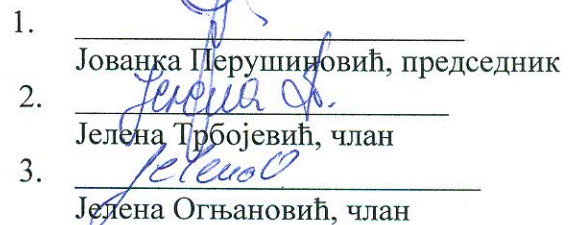 1.
Јованка Перушиновић, председник
2.
Јелена Трбојевић, члан
3.
Јелена Огњановић, члан